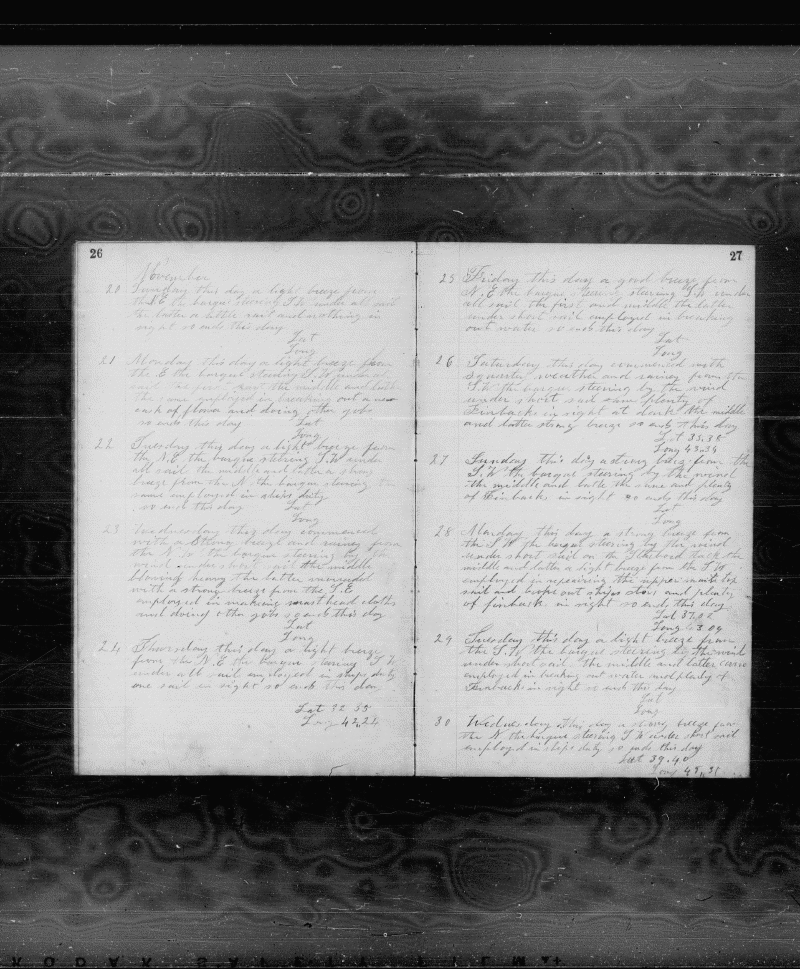 26
November
20 Sunday this day a light breeze from
the E the barque steering S.W under all sail
the latter a little rain and nothing in
sight so ends this day
Lat
Long
21 Monday this day a light breeze from
the E the barque steering S.W under
sail the middle and latter
the same employed in breaking out a new
cask of flower and doing other jobs
so ends this day Lat
Long
22 Tuesday this day a light breeze from
the N.E the barque steering S.W under
all sail the middle and latter a strong
breeze from the N. the barque steering the
same employed in ships duty
so ends this day Lat
Long
23 Wednesday this day commenced
with a strong breeze and rainey from
the N.W the barque steering by the
wind under short sail the middle
blowing heavy the latter moderated
with a strong breeze from the S.E
employed in making mast head cloths
and doing other jobs so ends this day
Lat
Long
24 Thursday this day a light breeze
from the N.E the barque steering S W
under all sail employed in ships duty
one sail in sight so ends this day
Lat 32 55
Long 42,,24
27
25 Friday this day a good breeze from
N.E the barque steering S.W under
all sail the first and middle the latter
under short sail employed in breaking
out water so ends this day
Lat
Long
26 Saturday this day commenced with
squally weather and rainey from the
S.W the barque steering by the wind
under short sail saw plenty of
Finbacks in sight at dark the middle
and latter strong breeze so ends this day
Lat 35.38
Long 43.34
27 Sunday this day a strong breeze from the
S.W the barque steering by the wind
the middle and latter the same and plenty
of Finbacks in sight so ends this day
Lat
Long
28 Monday this day a strong breeze from
the S.W the barque steering by the wind
under short sail on the Starbord tack the
middle and latter a light breeze from the S.W
employed in repairing the upper main top
sail and broke out ships stores and plenty
of finback in sight so ends this day
Lat 37.0
Long 43.09
29 Tuesday this day a light breeze from
the S.W the barque steering by the wind
under short sail the middle and latter
employed in breaking out water and plenty of
Finbacks in sight so ends this day
Lat
Long
30 Wednesday this day a strong breeze from
the N. the barque steering S.W under short sail
employed in ships duty so ends this day
Lat 39.40
Long 43,,31
KODAK SAFETY FILM